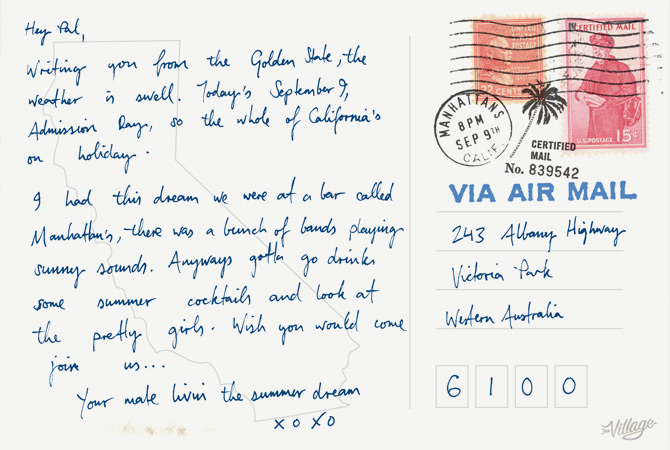 Hey Pal,
Writing you from the Golden State, the
weather is swell. Today's September 9,
Admission Day, so the whole of California's
on holiday.
I had this dream we were at a bar called
Manhattan's, there was a bunch of bands playing
sunny sounds. Anyways gotta go drinks
some summer cocktails and look at
the pretty girls. Wish you would come
join us...
Your mate livin the summer dream
x o x o
CERTIFIED MAIL
22 CENTS
U.S. POSTAGE 15¢
MANHATTANS
8 PM
SEP 9TH
CALIF.
CERTIFIED
MAIL
No. 839542
VIA AIR MAIL
243 Albany Highway
Victoria Park
Western Australia
6 1 0 0
The Village